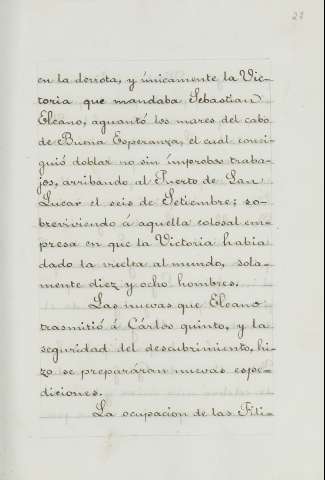 22
en la derrota, y únicamente la Vic-
toria que mandaba Sebastian
Elcano, aguantó los mares del cabo
de Buena Esperanza, el cual consi-
guió doblar no sin ímprobos traba-
jos, arribando al Puerto de San
Lucar el seis de Setiembre; so-
breviviendo á aquella colosal em-
presa en que la Victoria habia
dado la vuelta al mundo, sola-
mente diez y ocho hombres.
Las nuevas que Elcano
trasmitió á Cárlos quinto, y la
seguridad del descubrimiento, hi-
zo se prepararan nuevas espe-
diciones.
La ocupacion de las Fili-